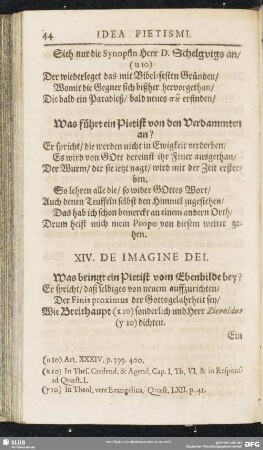 44 IDEA PIETISMI.
Sieh nur die Synopsin Herr D. Schelgvigs an/
(u 10)
Der wiederleget das mit Bibel-festen Gründen/
Womit die Gegner sich bißher hervorgethan/
Die bald ein Paradieß/ bald neues πῦ erfinden/
Was führt ein Pietist von den Verdammten
an?
Er spricht/ die werden nicht in Ewigkeit verderben/
Es wird von GOtt dereinst ihr Feuer ausgethan/
Der Wurm/ der sie jetzt nagt/ wird mit der Zeit erster-
ben.
So lehren alle die/ so wider GOttes Wort/
Auch denen Teuffeln selbst den Himmel zugestehen/
Das hab ich schon bemerckt an einem andern Orth/
Drum heist mich mein Propo von diesem weiter ge-
hen.
XIV. DE IMAGINE DEI.
Was bringt ein Pietist vom Ebenbilde bey?
Er spricht/ daß selbiges von neuem auffzurichten/
Der Finis proximus der Gottsgelahrheit sey/
Wie Breithaupt (x 10) sonderlich und Herr Zieroldus
(y 10) dichten.
Ein
(u 10) Art. XXXIV. p. 395. 400.
(x 10) In Thes. Credend. & Agend. Cap. I. Th. VI. & in Respons.
ad Quæst. I.
(y 10) In Theol. vere Evangelica, Quæst. LXII. p. 41.
SLUB
DFG